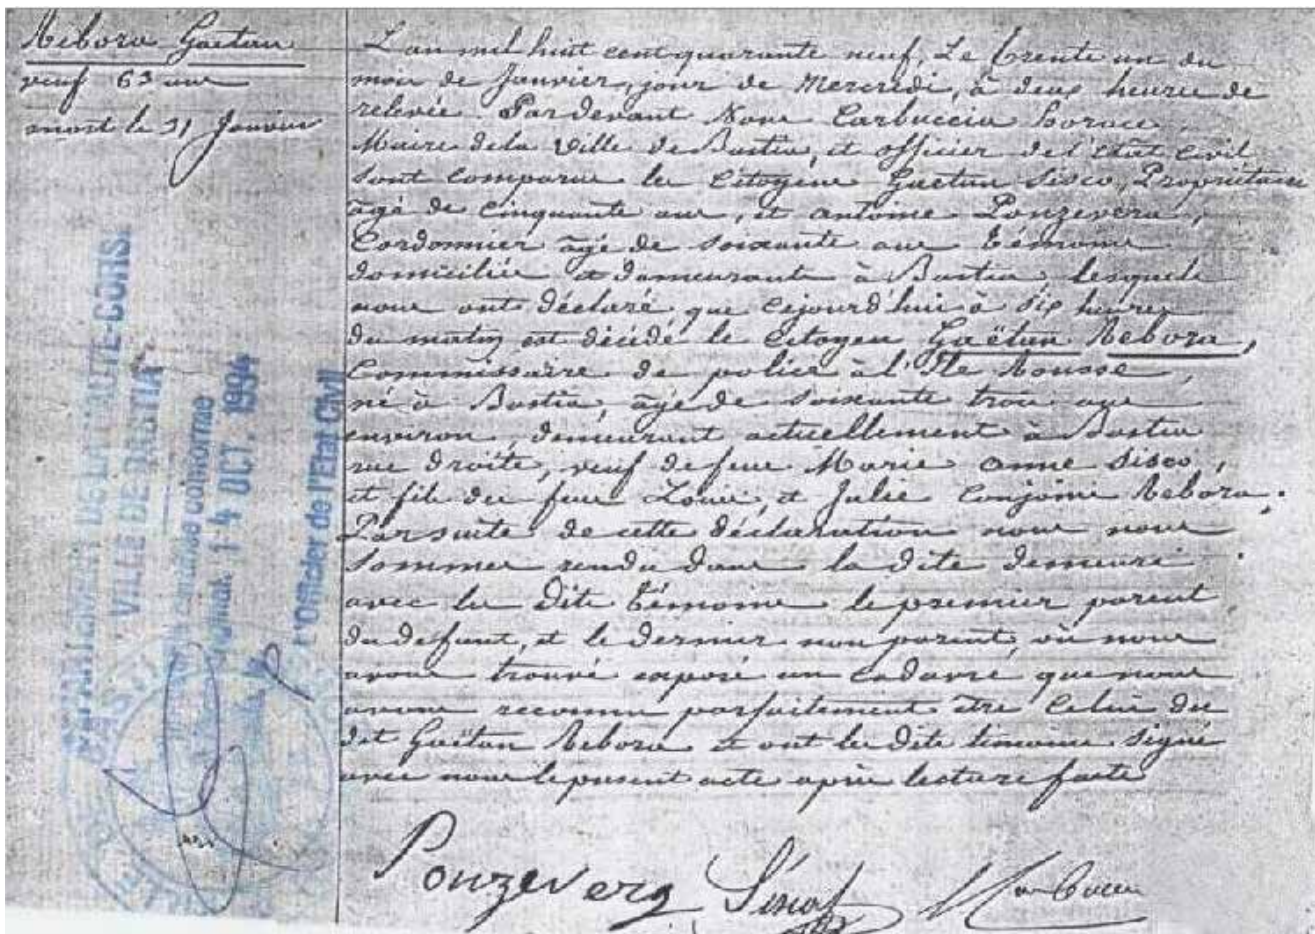 Rebora Gaetan
veuf 63 ans
mort le 31 Janvier
L'an mil huit cent quarante neuf, Le trente un du
mois de Janvier, jour de Mercredi, à deux heures de
relevée. Pardevant Nous Carbuccia Horace
Maire de la Ville de Bastia, et officier de l'état civil
sont comparus les Citoyens Gaetan Sisco, Propriétaire
âgé de cinquante ans, et Antoine Ponzevera,
Cordonnier âgé de soixante ans témoins
domiciliés et demeurants à Bastia lesquels
nous ont déclaré que cejourd'hui à six heures
du matin est décédé le Citoyen Gaëtan Rebora,
Commissaire de police à l'Ile Rousse,
né à Bastia, âgé de soixante trois ans
environ, demeurant actuellement à Bastia
rue droite, veuf de feue Marie Anne Sisco,
et fils des feus Louis, et Julie Conjoins Rebora.
Parsuite de cette déclaration nous nous
sommes rendu dans la dite demeure
avec les dits témoins le premier parent
du defunt, et le dernier non parent, où nous
avons trouvé exposé un cadavre que nous
avons reconnu parfaitement être Celui du
dit Gaëtan Rebora et ont les dits témoins signé
avec nous le present acte après lecture faite
Ponzevera
DÉPARTEMENT DE LA HAUTE-CORSE
VILLE DE BASTIA
certifiée conforme
14 OCT. 1994
L'Officier de l'Etat Civil